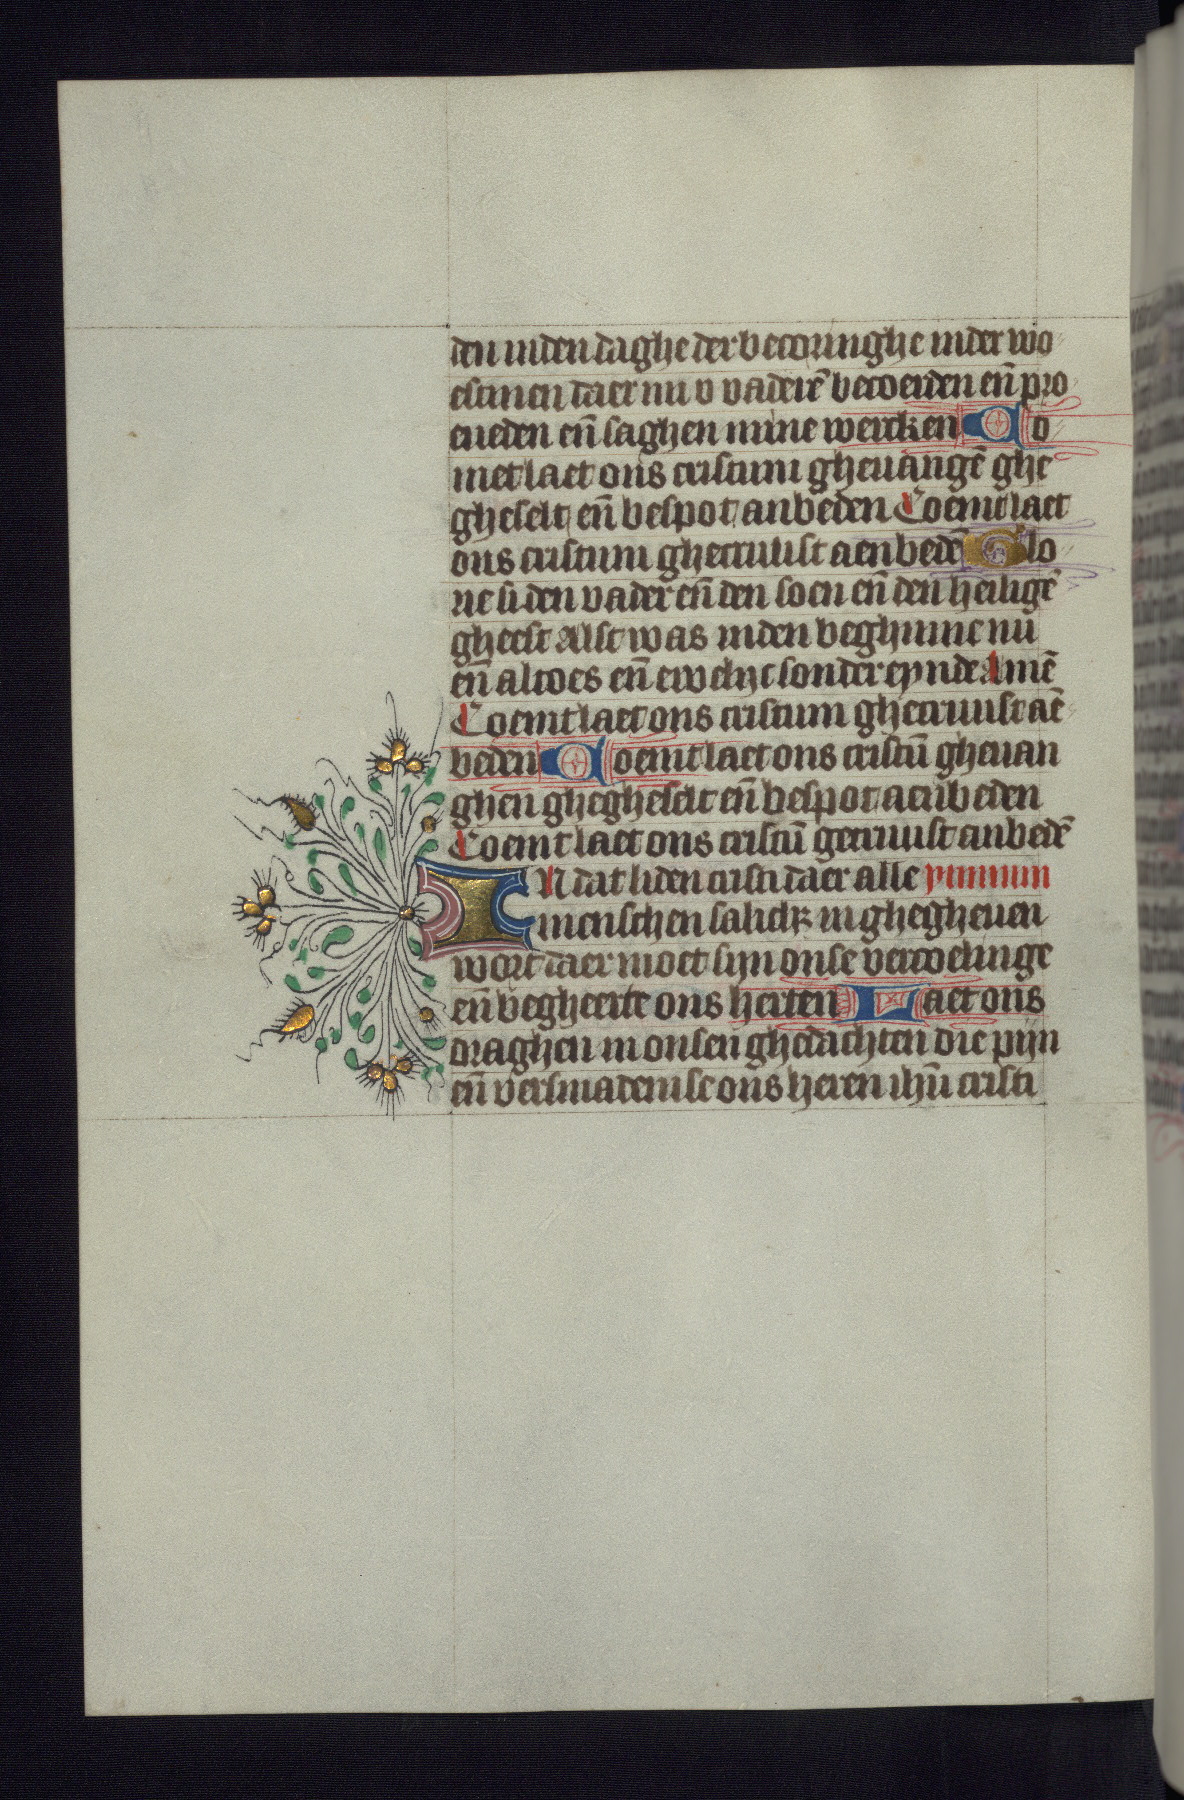 den inden daghe der becoringhe inder wo
estinen daer mi v vaderē becoerden eñ pro
eueden eñ saghen mine wercken Co
met laet ons cristum gheuangē ghe
gheselt eñ bespot anbeden Coemt laet
ons cristum ghecruust aenbedē Glo
rie si den vader eñ den soen eñ den heiligē
gheest Alst was inden beghinne nu
eñ altoes eñ ewelyc sonder eynde Amē
Coemt laet ons cristum ghecruust aē
beden Coemt laet ons cristū gheuan
ghen ghegheselt eñ bespot aenbeden
Coemt laet ons cristū gecruust anbedē
IN dat liden cristi daer alle ymnum
menschen salich in ghegheuen
wort daer moet sijn onse vercoelinge
eñ begheerte ons herten Laet ons
draghen in onsen ghedachten die pijn
eñ versmadenisse ons heren ihū cristi